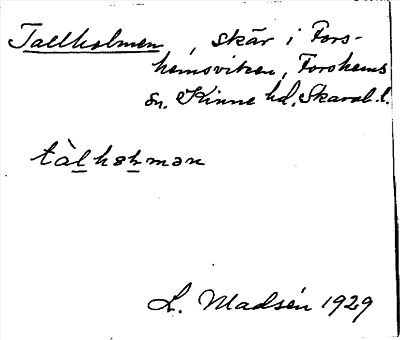 Tallholmen, skär i Fors-
hemsviken, Forshems
sn. Kinne hd, Skarab. l.
tàlhəlmən
L. Madsén 1929